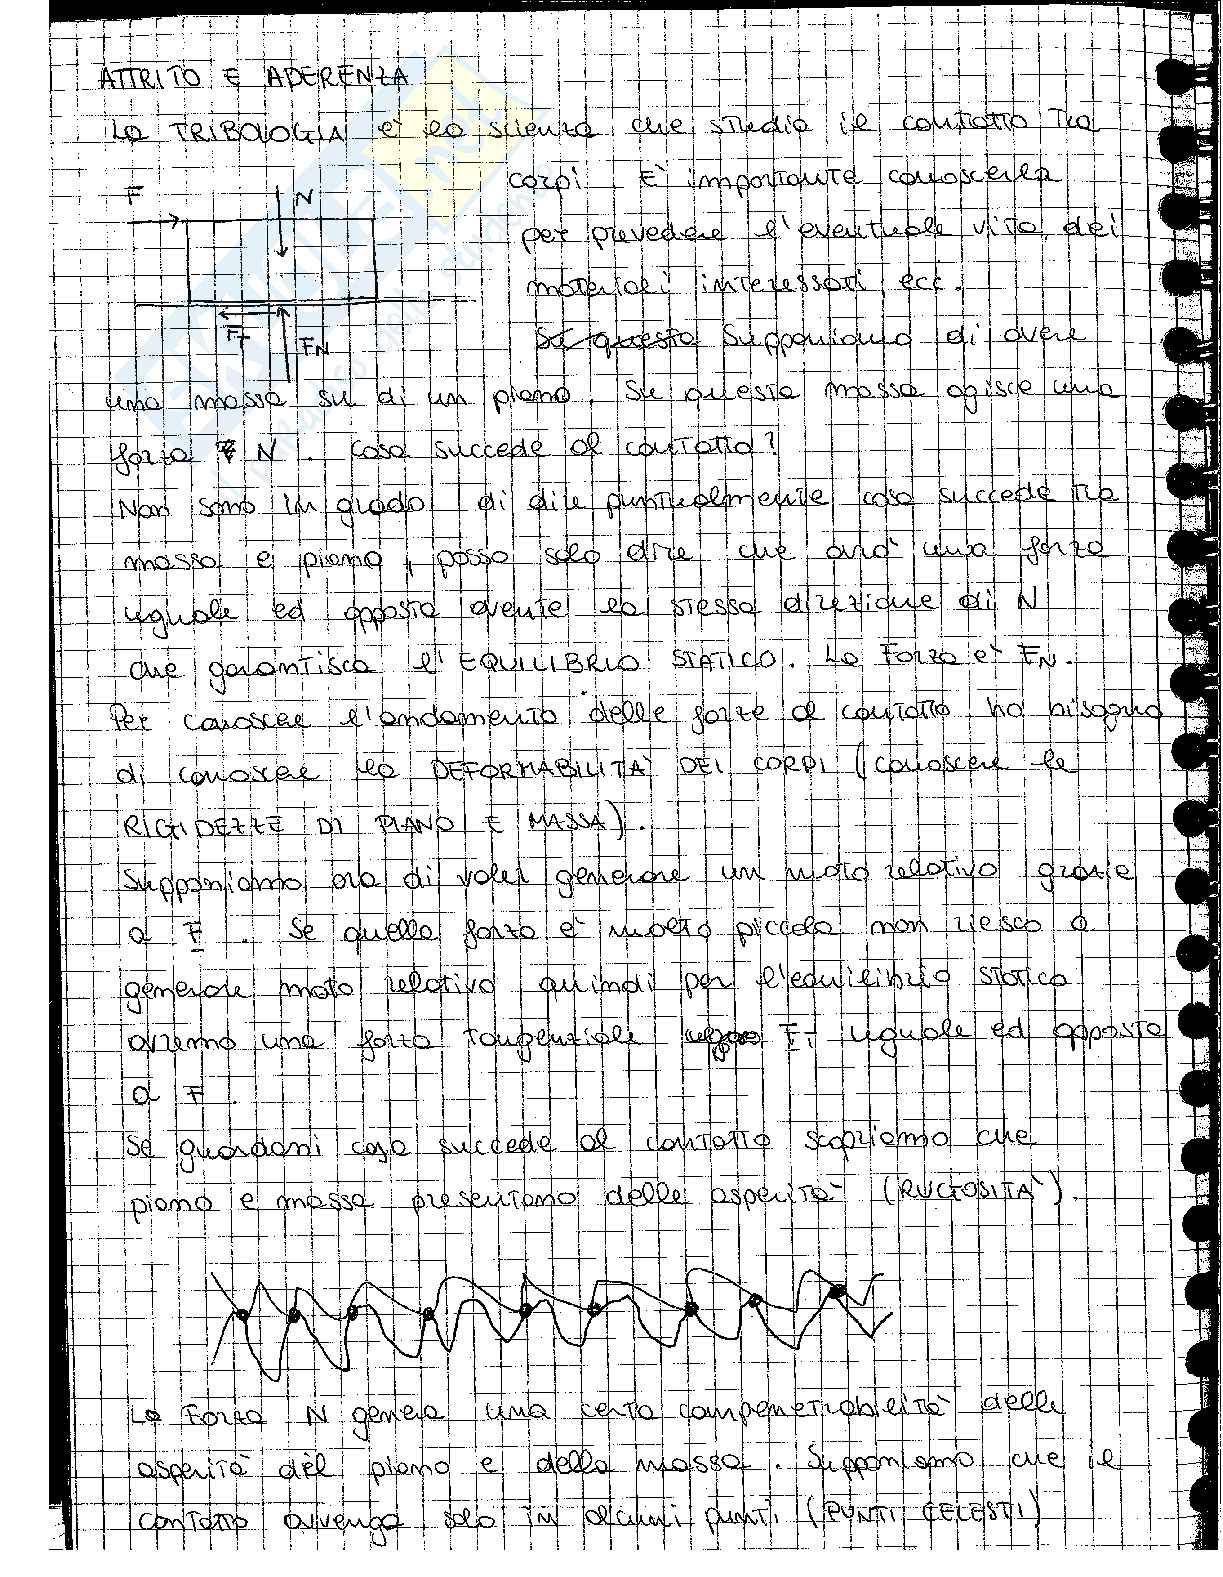 ATTRITO E ADERENZA
La TRIBOLOGIA è la scienza che studia il contatto tra
corpi. È importante conoscerla
per prevedere l'eventuale vita dei
materiali interessati ecc.
F
N
FT
FN
Se questa Supponiamo di avere
una massa su di un piano. Su questa massa agisce una
forza F N. Cosa succede al contatto?
Non sono in grado di dire puntualmente cosa succede tra
massa e piano, posso solo dire che avrò una forza
uguale ed opposta avente la stessa direzione di N
che garantisca l'EQUILIBRIO STATICO. La Forza è FN.
Per conoscere l'andamento delle forze al contatto ho bisogno
di conoscere la DEFORMABILITÀ DEI CORPI (conoscere le
RIGIDEZZE DI PIANO E MASSA).
Supponiamo ora di voler generare un moto relativo grazie
a F. Se quella forza è molto piccola non riesco a
generare moto relativo quindi per l'equilibrio statico
avremo una forza tangenziale FT uguale ed opposta
a F.
Se guardiami cosa succede al contatto scopriamo che
piano e massa presentano delle asperità (RUGOSITÀ).
La Forza N genera una certa compenetrabilità delle
asperità del piano e della massa. Supponiamo che il
contatto avvenga solo in alcuni punti (PUNTI CELESTI)